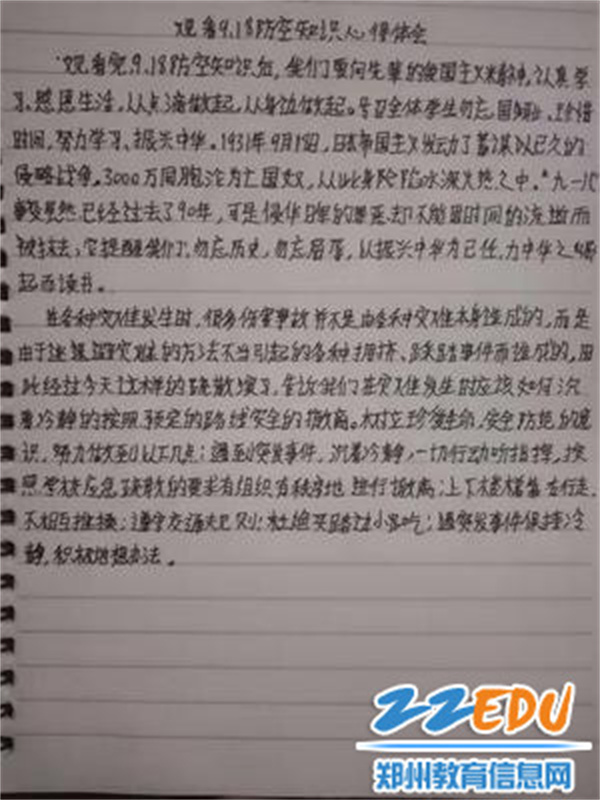 观看9.18防空知识心得体会
观看完9.18防空知识后,我们要向先辈的爱国主义精神,认真学
习、感恩生活,从点滴做起,从身边做起。号召全体学生勿忘国耻,珍惜
时间,努力学习、振兴中华。1931年9月18日,日本帝国主义发动了蓄谋以已久的
侵略战争。3000万同胞沦为亡国奴,从此身陷水深火热之中。"九一八
事变虽然已经过去了90年,可是侵华日军的罪恶却不能因时间的流逝而
被抹去,它提醒我们,勿忘历史,勿忘屈辱,以振兴中华为己任,为中华之崛
起而读书。
在各种灾难发生时,很多伤害事故并不是由各种灾难本身造成的,而是
由于逃避灾难的方法不当引起的各种拥挤、踩踏事件而造成的,因
此经过今天这样的疏散演习,告诉我们在灾难发生时应该如何沉
着冷静的按照预定的路线安全的撤离。树立珍爱生命,安全防范的意
识,努力做到以下几点:遇到突发事件,沉着冷静,一切行动听指挥,按
照学校应急疏散的要求有组织有秩序地进行撤离;上下楼梯靠右行走,
不相互推搡;遵守交通规则;杜绝买路边小吃;遇突发事件保持冷
静,积极地想办法。
ZZEDU
郑州教育信息网